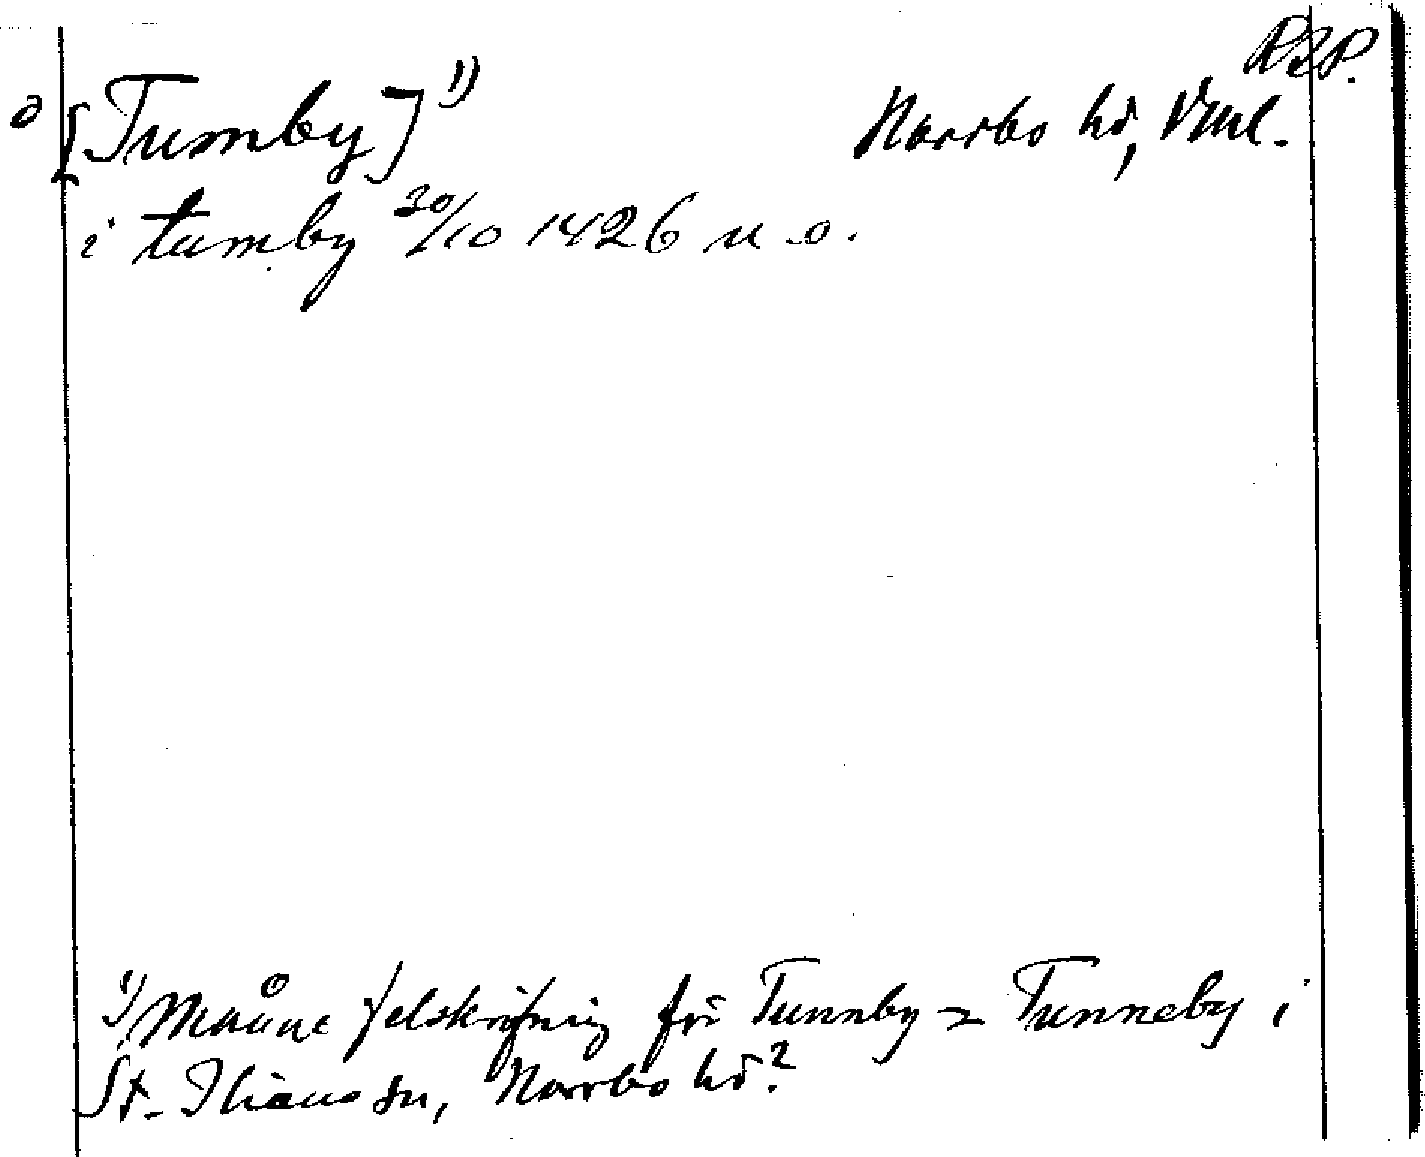 RAP.
[Tumby] 1) Norrbo hd, Vml.
i tumby 30/10 1426 n.o.
1) Månne felskrifnig för Tunnby = Tunneby i
St. Ilians sn, Norrbo hd?